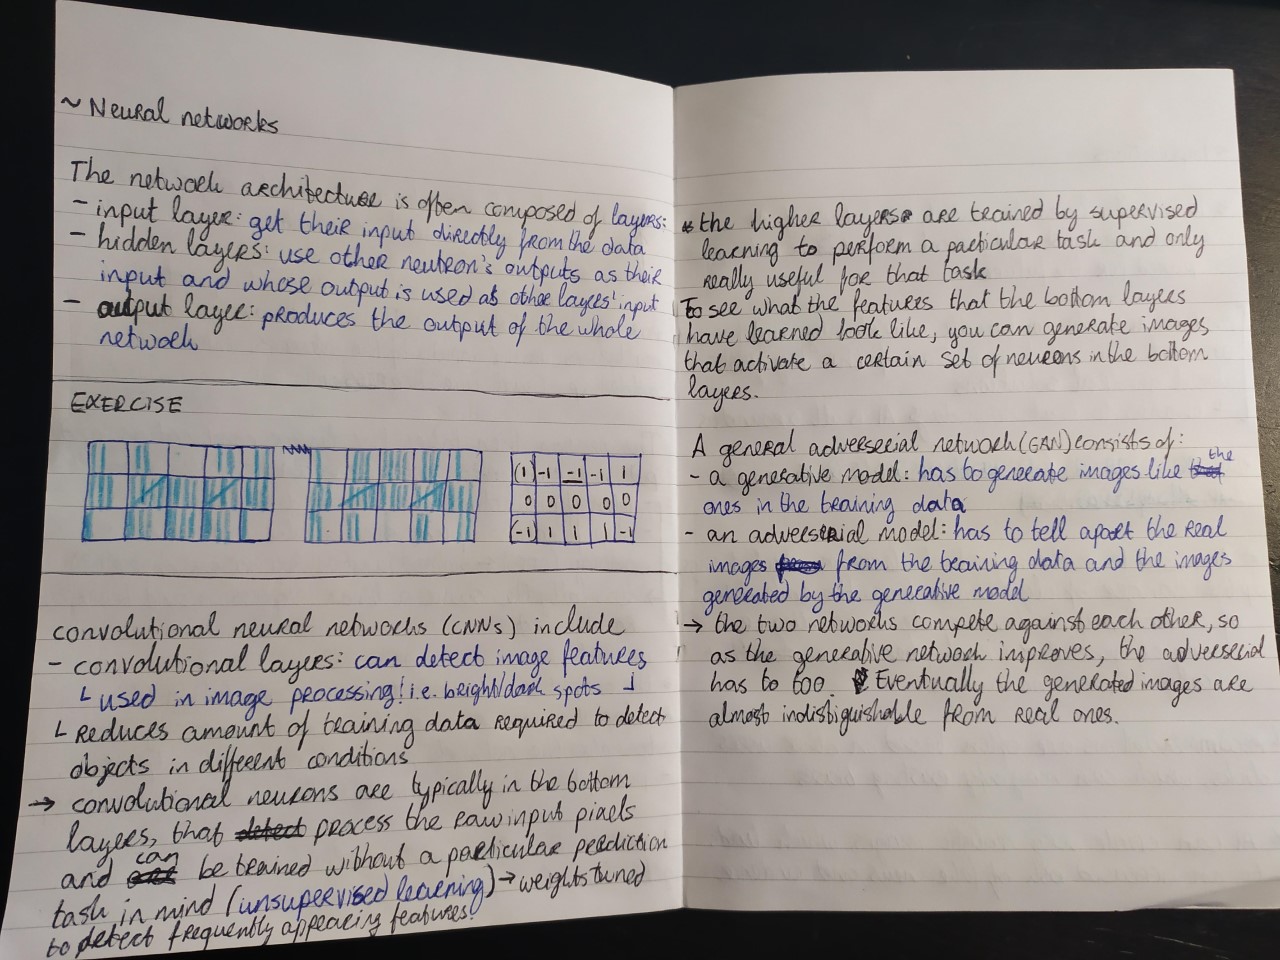 ~ Neural networks
The network architecture is often composed of layers:
- input layer: get their input directly from the data
- hidden layers: use other neutron's outputs as their
input and whose output is used as other layers' input
- output layer: produces the output of the whole
network
EXERCISE
(1) -1 -1 -1 1
0 0 0 0 0
(-1) 1 1 1 -1
convolutional neural networks (CNNs) include
- convolutional layers: can detect image features
└ used in image processing! i.e. bright/dark spots ┘
└ reduces amount of training data required to detect
objects in different conditions
→ convolutional neurons are typically in the bottom
layers, that detect process the raw input pixels
and can be trained without a particular prediction
task in mind (unsupervised learning) → weights tuned
to detect frequently appearing features.
* the higher layers are trained by supervised
learning to perform a particular task and only
really useful for that task
To see what the features that the bottom layers
have learned look like, you can generate images
that activate a certain set of neurons in the bottom
layers.
A general adverserial network (GAN) consists of:
- a generative model: has to generate images like the
ones in the training data
- an adverserial model: has to tell apart the real
images from the training data and the images
generated by the generative model
→ the two networks compete against each other, so
as the generative network improves, the adverserial
has to too. Eventually the generated images are
almost indistiguishable from real ones.